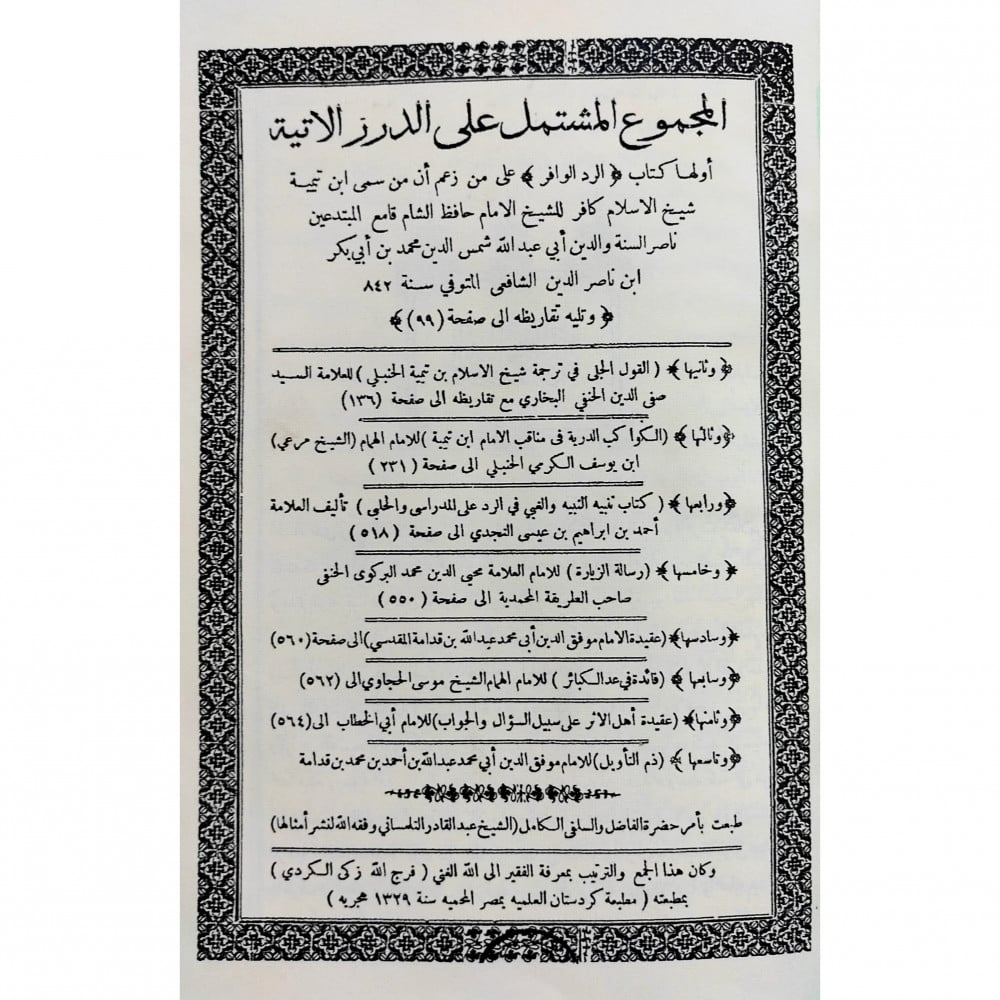 المجموع المشتمل على الدرر الاتية
أولها كتاب ﴿ الرد الوافر ﴾ على من زعم أن من سمى ابن تيمية
شيخ الاسلام كافر للشيخ الامام حافظ الشام قامع المبتدعين
ناصر السنة والدين أبي عبد الله شمس الدين محمد بن أبي بكر
ابن ناصر الدين الشافعى المتوفي سنة ٨٤٢
﴿ وتليه تقاريظه الى صفحة (٩٩) ﴾
﴿ وثانيها ﴾ ( القول الجلى في ترجمة شيخ الاسلام بن تيمية الحنبلي ) للعلامة السيد
صفى الدين الحنفي البخاري مع تقاريظه الى صفحة (١٣٦)
﴿ وثالثها ﴾ (الكواكب الدرية فى مناقب الامام ابن تيمية )للامام الهمام (الشيخ مرعي)
ابن يوسف الكرمي الحنبلي الى صفحة ( ٢٣١ )
﴿ ورابعها ﴾ ( كتاب تنبيه النبيه والغبي في الرد على المدراسى والحلبى ) تأليف العلامة
أحمد بن ابراهيم بن عيسى النجدي الى صفحة ( ٥١٨ )
﴿ وخامسها ﴾ (رسالة الزيارة ) للامام العلامة محيي الدين محمد البركوى الحنفى
صاحب الطريقة المحمدية الى صفحة ( ٥٥٠ )
﴿ وسادسها ﴾ (عقيدة الامام موفق الدين أبى محمد عبد الله بن قدامة المقدسي)الى صفحة (٥٦٠)
﴿ وسابعها ﴾ (فائدة في عد الكبائر ) للامام الهمام الشيخ موسى الحجاوي الى (٥٦٢)
﴿ وثامنها ﴾ (عقيدة أهل الاثر على سبيل السؤال والجواب)للامام أبي الخطاب الى (٥٦٤)
﴿ وتاسعها ﴾ (ذم التأويل)للامام موفق الدين أبي محمد عبد الله بن أحمد بن محمد بن قدامة
طبعت بأمر حضرة الفاضل والسلفى الكامل (الشيخ عبد القادر التلمسانى وفقه الله لنشر أمثالها)
وكان هذا الجمع والترتيب بمعرفة الفقير الى الله الغني ( فرج الله زكى الكردي )
بمطبعته ( مطبعة كردستان العلميه بمصر المحميه سنة ١٣٢٩ هجريه )